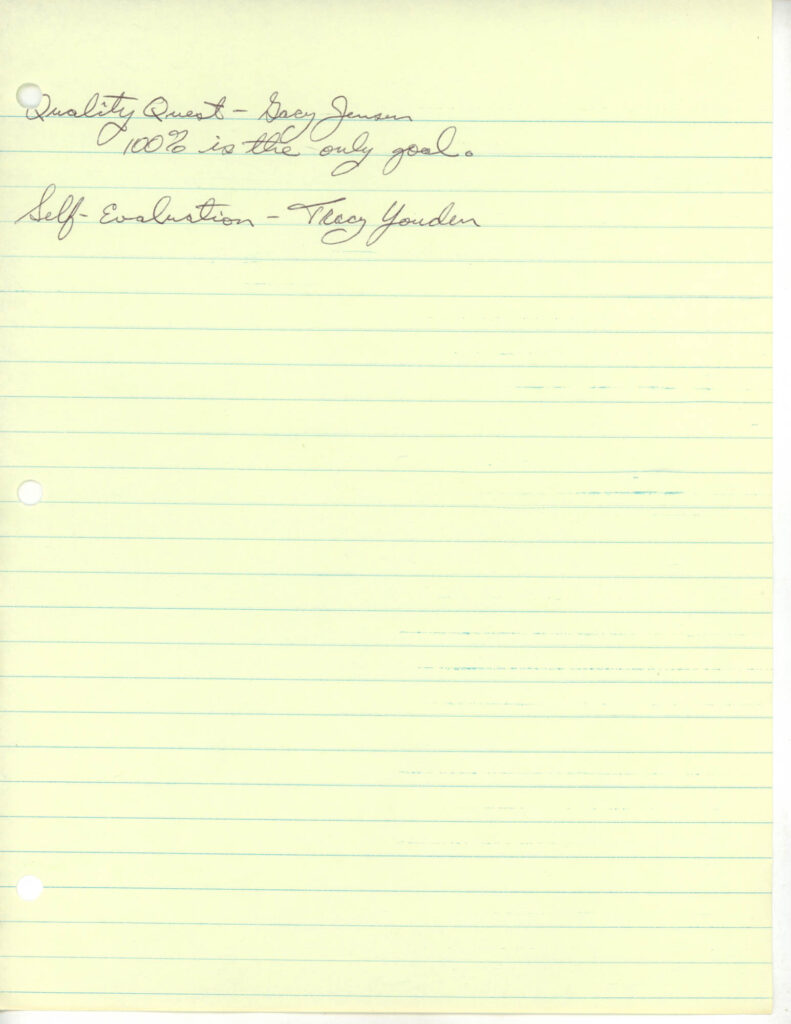 Quality Quest - Gacy Jensen
100% is the only goal.
Self-Evaluation - Tracy Youden